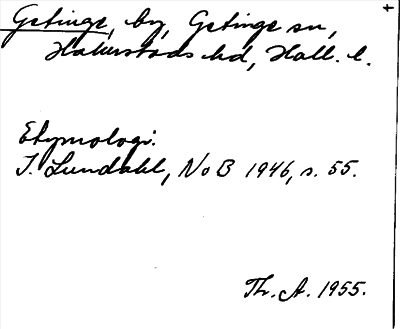 Getinge, by, Getinge sn,
Halmstads hd, Hall. l.
Etymologi:
I. Lundahl, NoB 1946, s. 55.
Th. A. 1955.